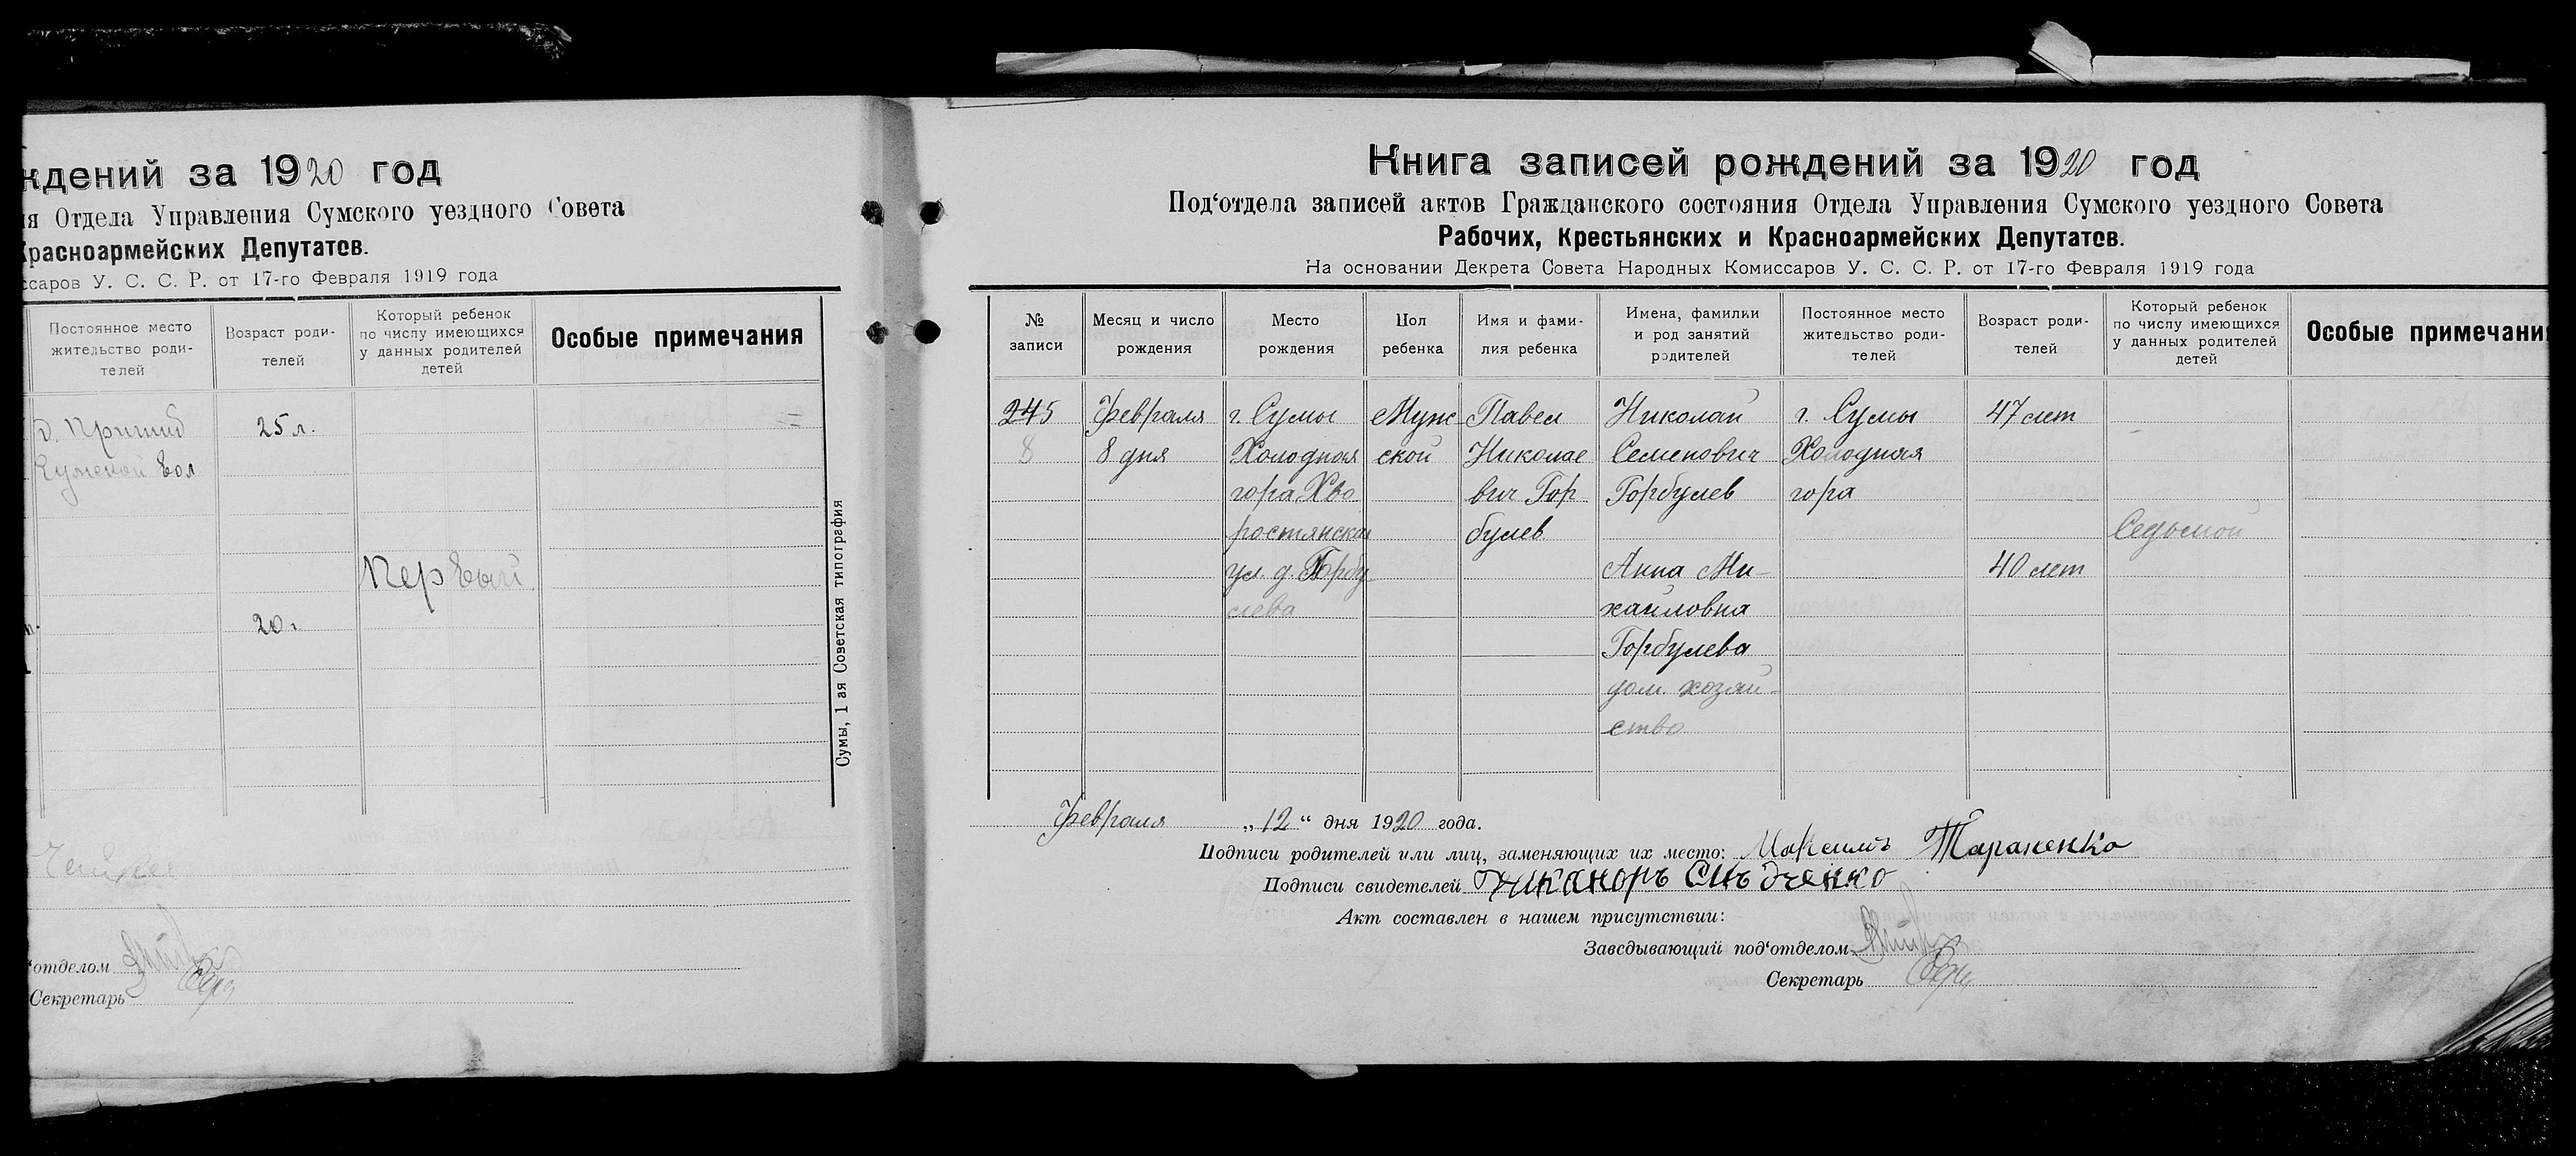 ждений за 1920 год
ия Отдела Управления Сумского уездного Совета
Красноармейских Депутатов.
ссаров У. С. С. Р. от 17-го Февраля 1919 года
Постоянное место жительство роди-телей
Возраст роди-телей
Который ребенок по числу имеющихся у данных родителей детей
Особые примечания
25 л.
вол
Первый
20.
Сумы, 1 ая Советская типография
'отделом
Секретарь
Книга записей рождений за 1920 год
Под‘отдела записей актов Гражданского состояния Отдела Управления Сумского уездного Совета
Рабочих, Крестьянских и Красноармейских Депутатов.
На основании Декрета Совета Народных Комиссаров У. С. С. Р. от 17-го Февраля 1919 года
№ записи
Месяц и число рождения
Место рождения
Пол ребенка
Имя и фами-лия ребенка
Имена, фамилии и род занятий родителей
Постоянное место жительство роди-телей
Возраст роди-телей
Который ребенок по числу имеющихся у данных родителей детей
Особые примечани
245 Февраля г. Сумы Муж Павел Николай г. Сумы 47 лет
8 8 дня Холодная ской Николае Семенович Холодная
гора Хво вич Гор Горбулев гора
ростянская булев Седьмой
ул. д. Горбу Анна Ми- 40 лет
лева хайловна
Горбулева
дом. хозяй-
ство
Февраля „12“ дня 1920 года.
Подписи родителей или лиц, заменяющих их место: Максимъ Тараненко
Подписи свидетелей Никаноръ
Акт составлен в нашем присутствии:
Заведывающий под‘отделом
Секретарь